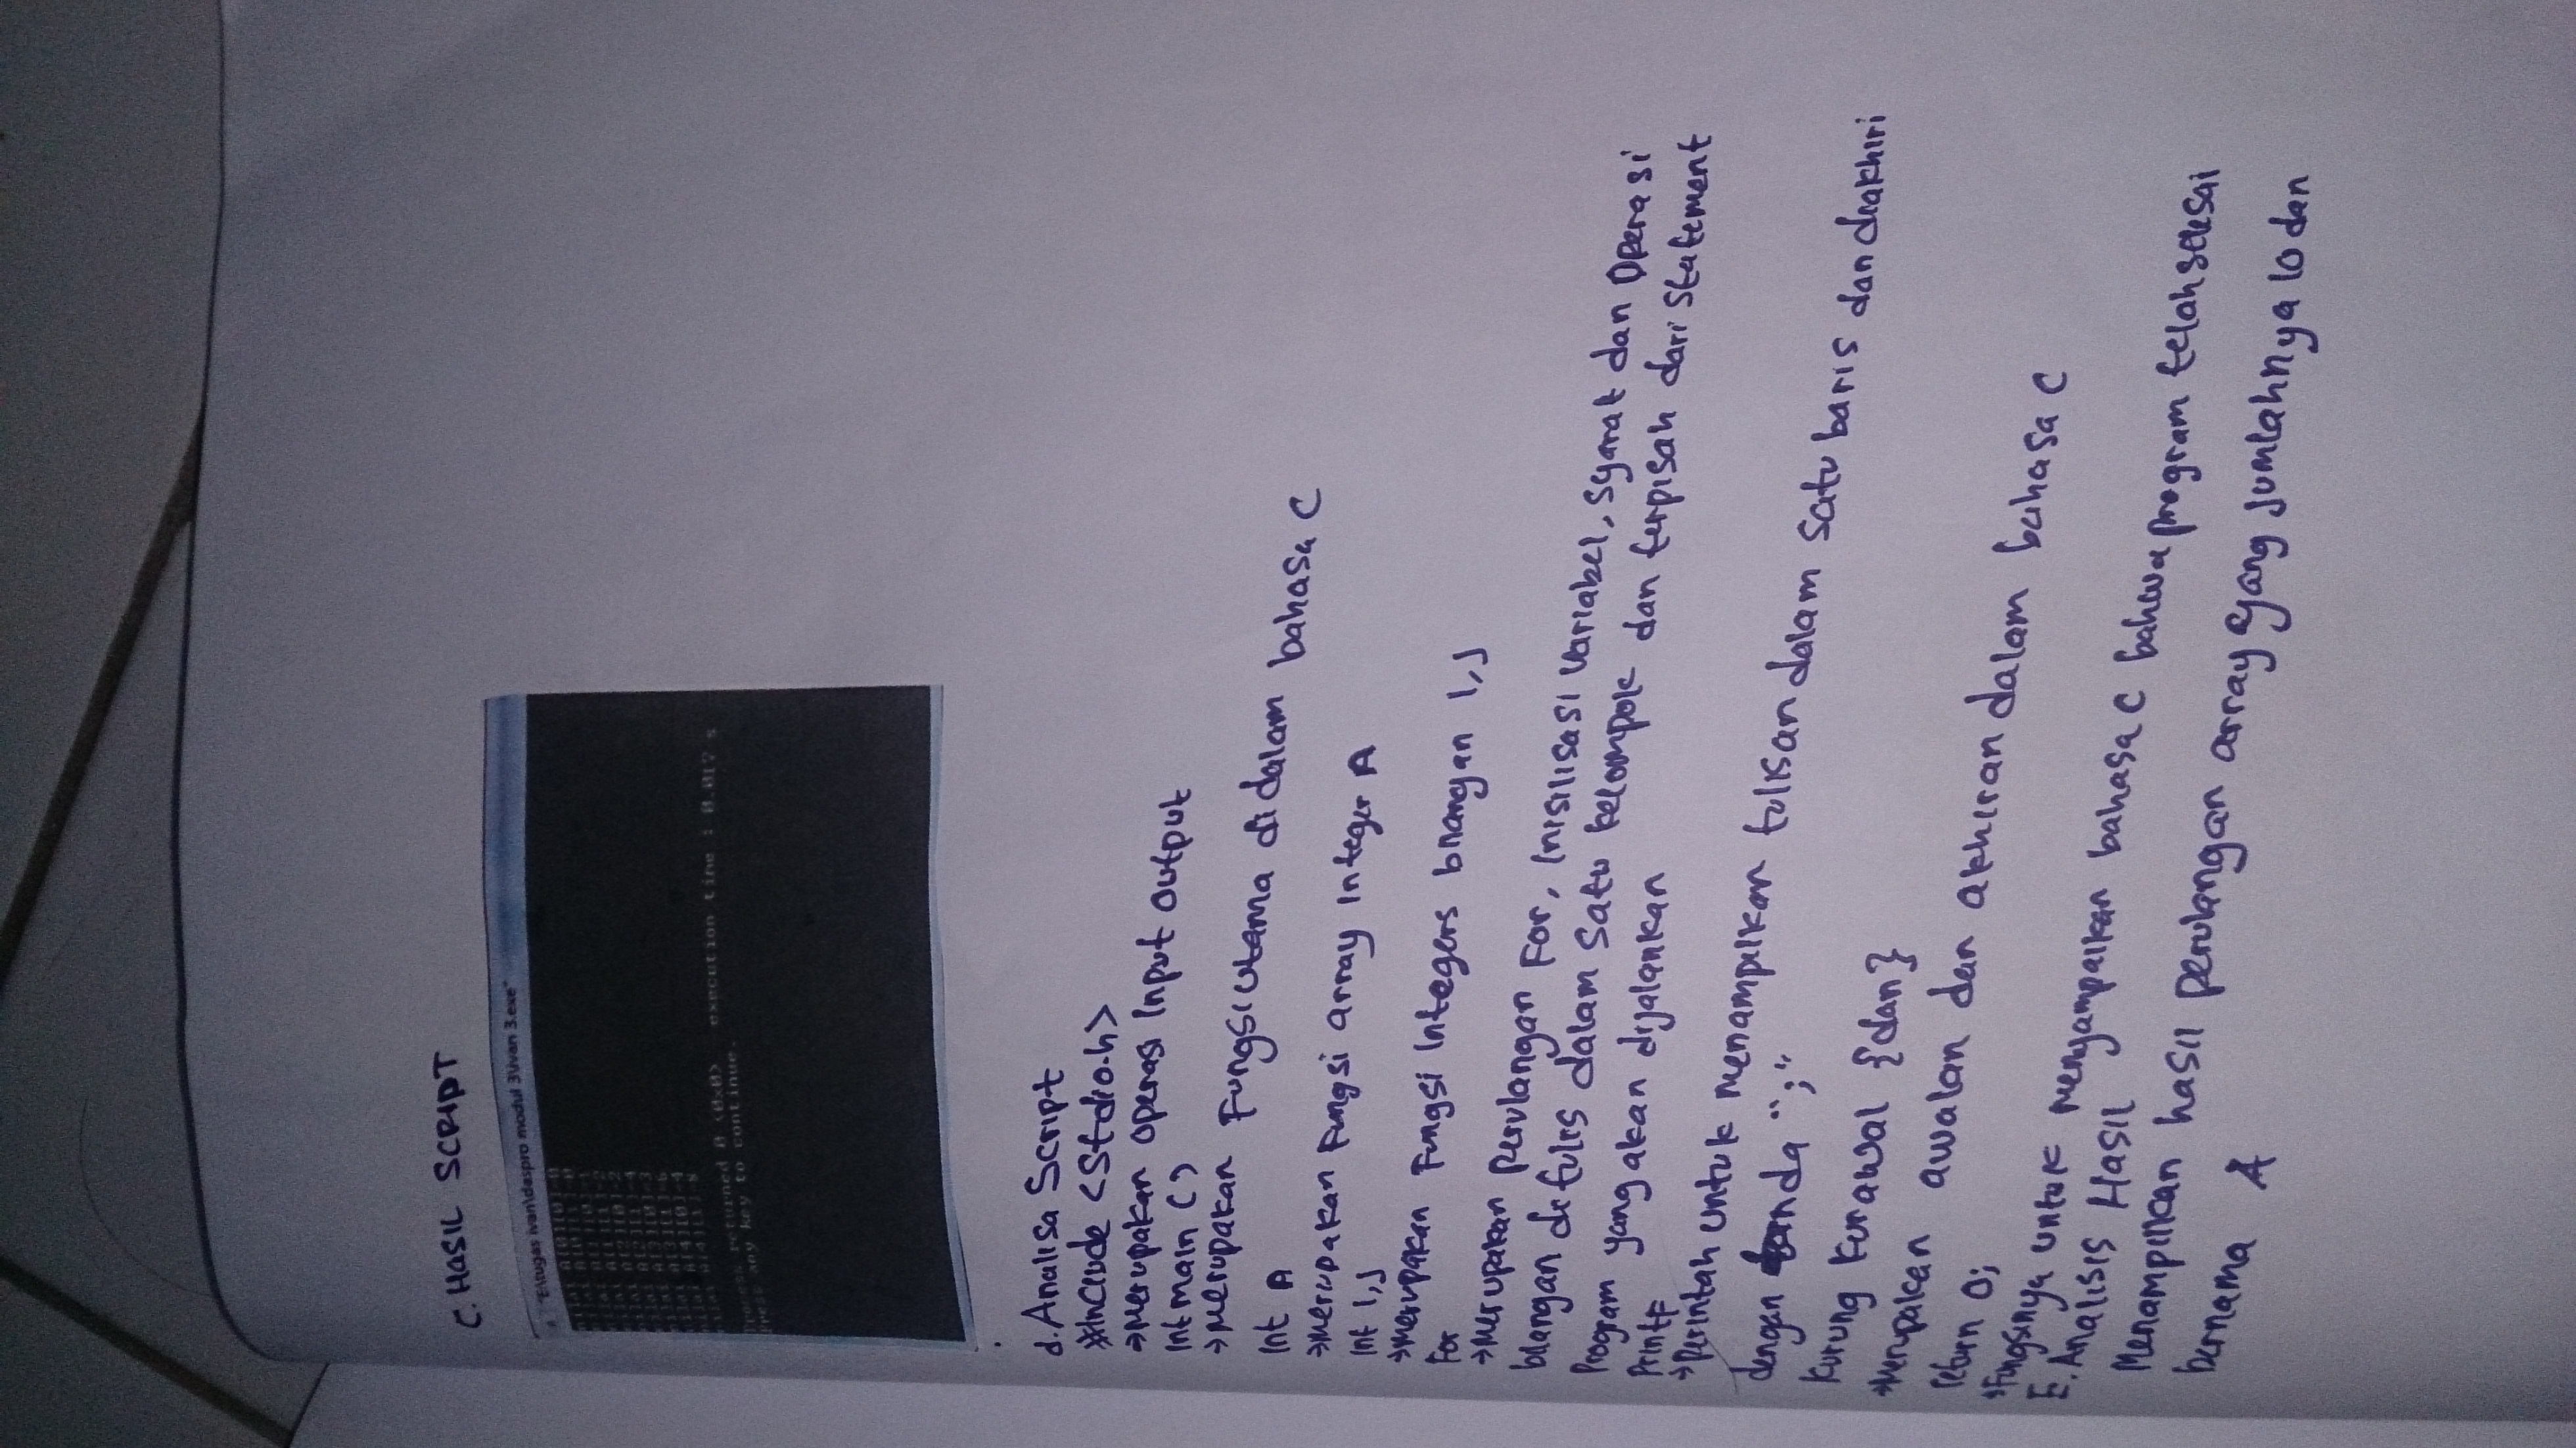 C. HASIL SCRIPT
"E:\tugas ivan\daspro modul 3\ivan 3.exe"
returned 0 (0x0) execution time : 0.017 s
any key to continue.
d. Analisa Script
#Include <Stdio.h>
→ Merupakan operasi Input output
Int main ()
→ Merupakan Fungsi utama di dalam bahasa C
Int A
→ Merupakan Fungsi array Integer A
Int I,J
→ Merupakan Fungsi Integers bilangan I,J
For
→ Merupakan Perulangan For, Inisilisasi Variabel, Syarat dan Operasi
bilangan ditulis dalam satu kelompok dan terpisah dari Statement
Program yang akan dijalankan
Printf
→ Perintah untuk menampilkan tulisan dalam satu baris dan diakhiri
dengan tanda ";"
Kurung Kurawal {dan}
→ Merupakan awalan dan akhiran dalam bahasa C
return 0;
→ Fungsinya untuk menyampaikan bahasa C bahwa program telah selesai
E. Analisis Hasil
Menampilkan hasil perulangan array yang Jumlahnya 10 dan
bernama A